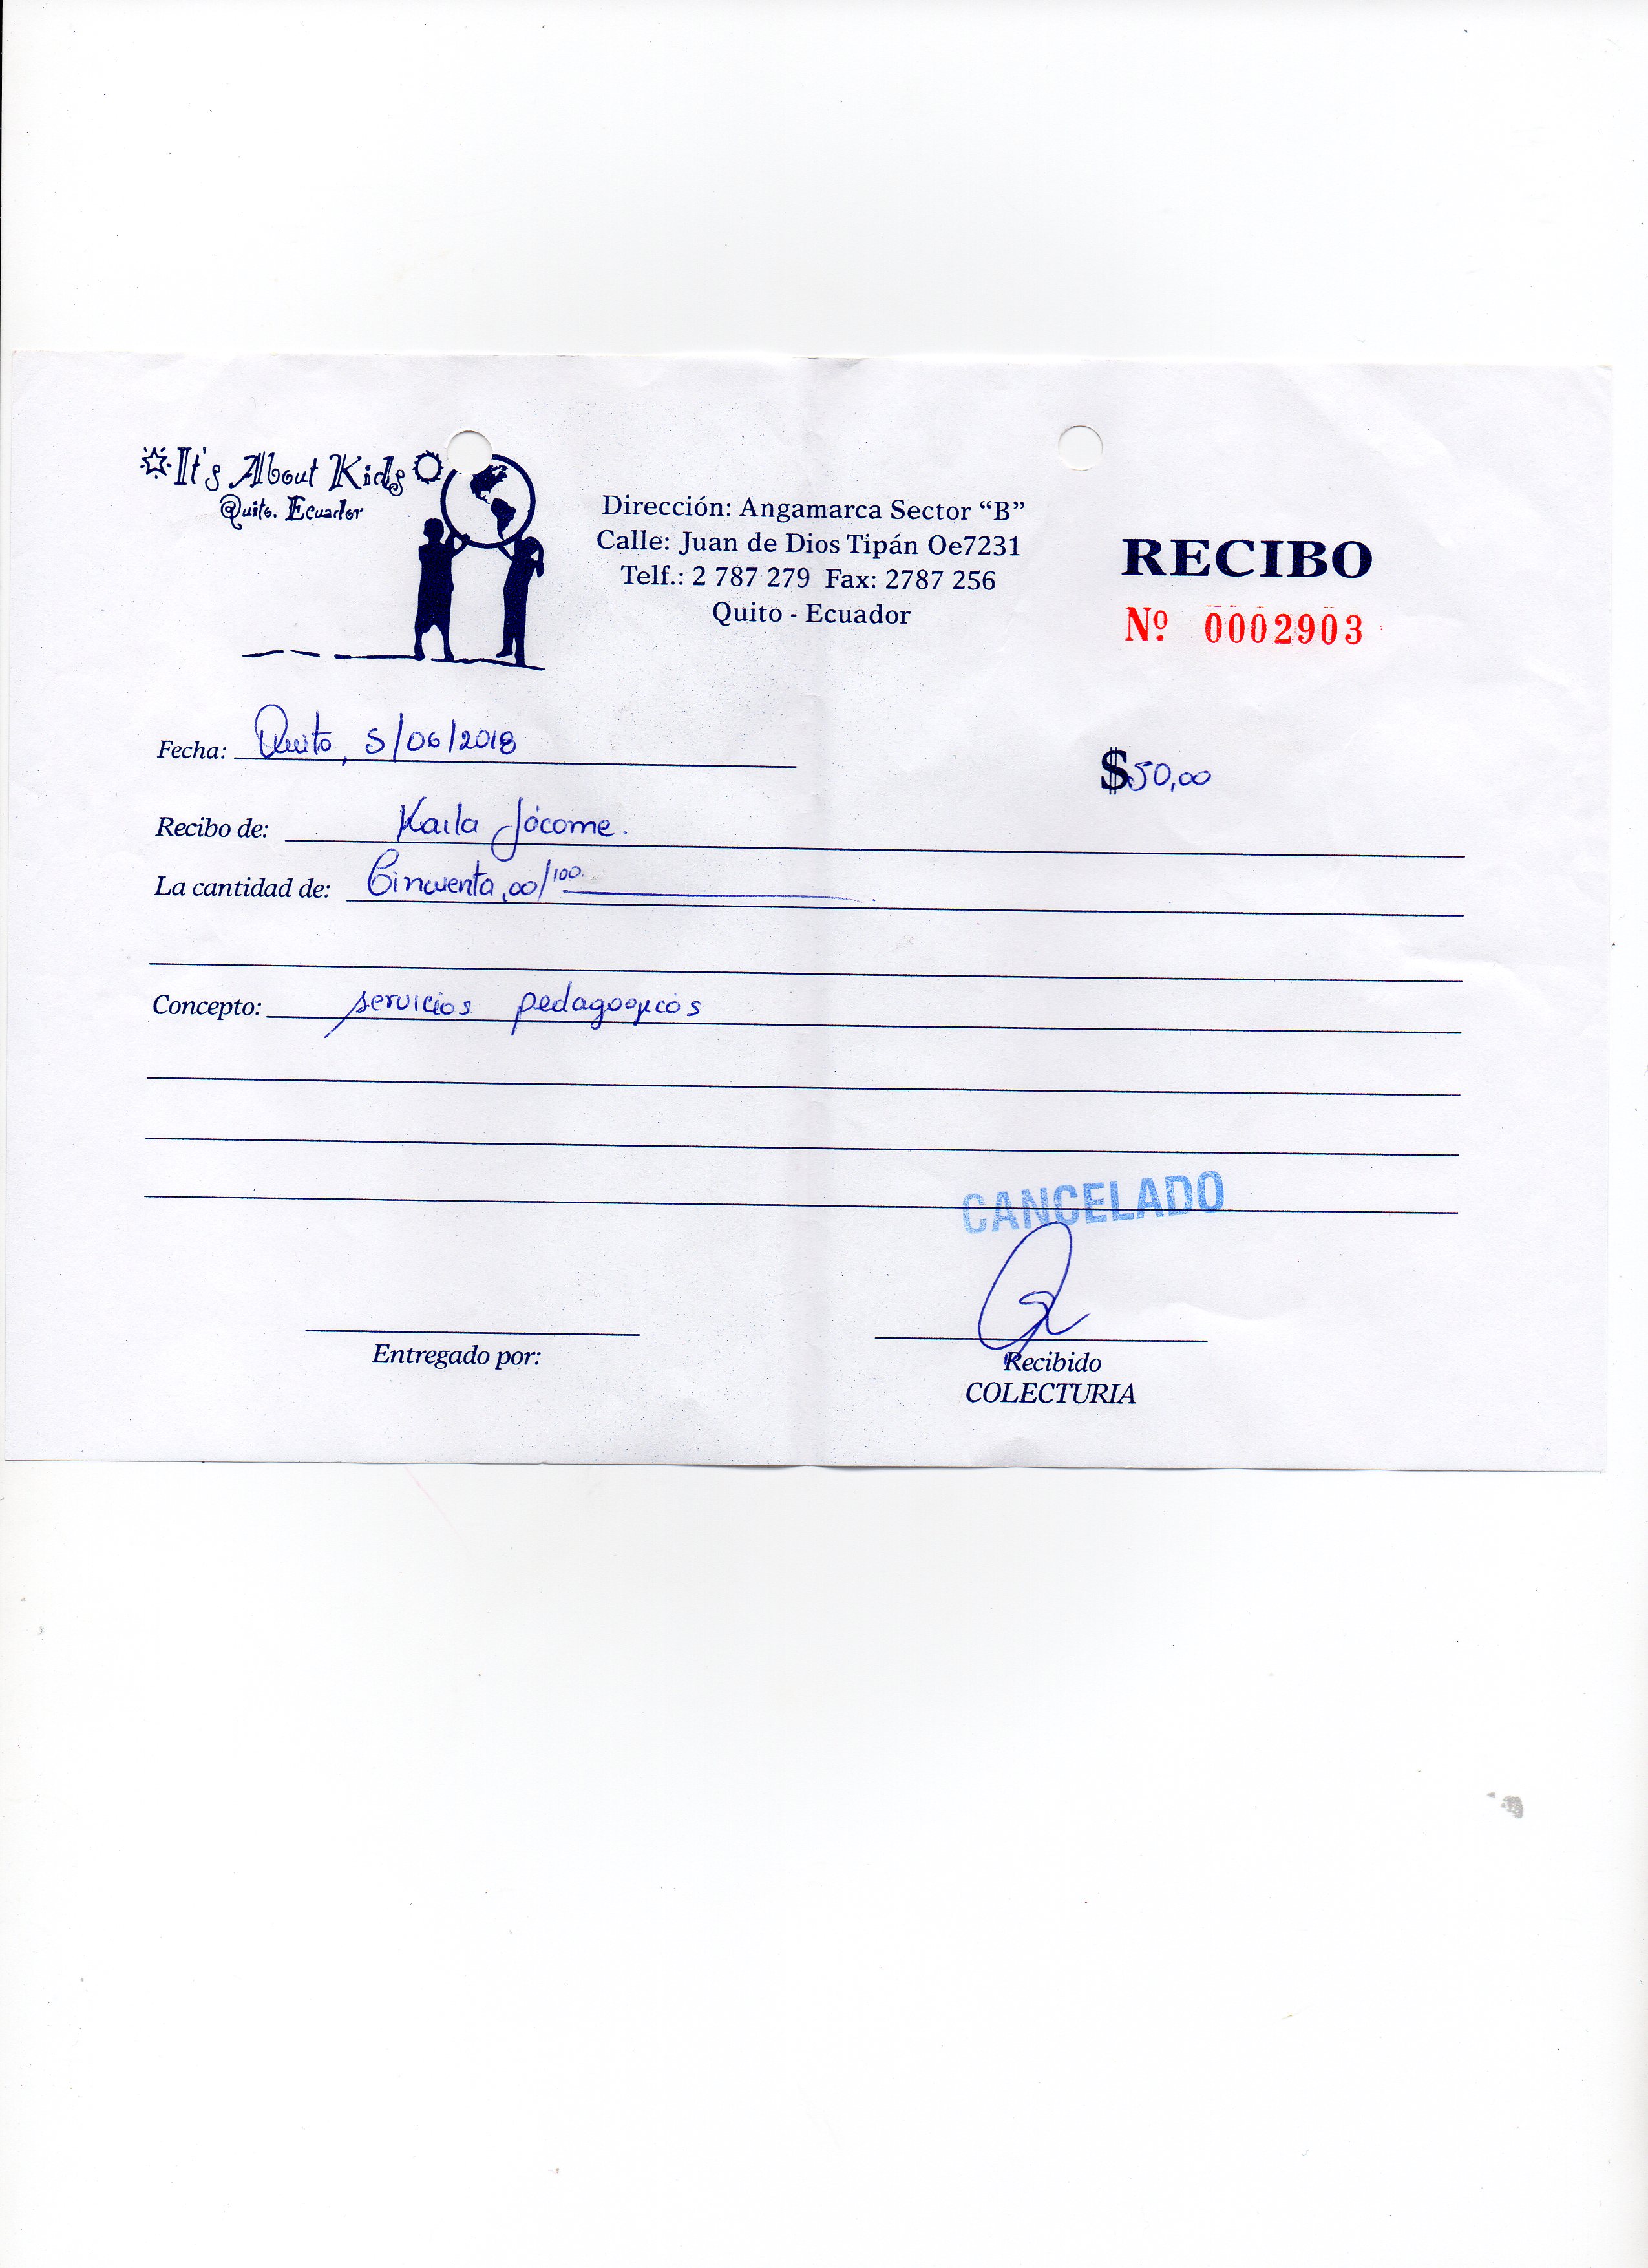 It's About Kids
Quito. Ecuador
Dirección: Angamarca Sector “B”
Calle: Juan de Dios Tipán Oe7231
Telf.: 2 787 279 Fax: 2787 256
Quito - Ecuador
RECIBO
Nº 0002903
Fecha: Quito, 5/06/2018
$50,00
Recibo de: Kaila Jócome.
La cantidad de: Cincuenta,00/100.
Concepto: servicios pedagogicos
CANCELADO
Entregado por:
Recibido
COLECTURIA